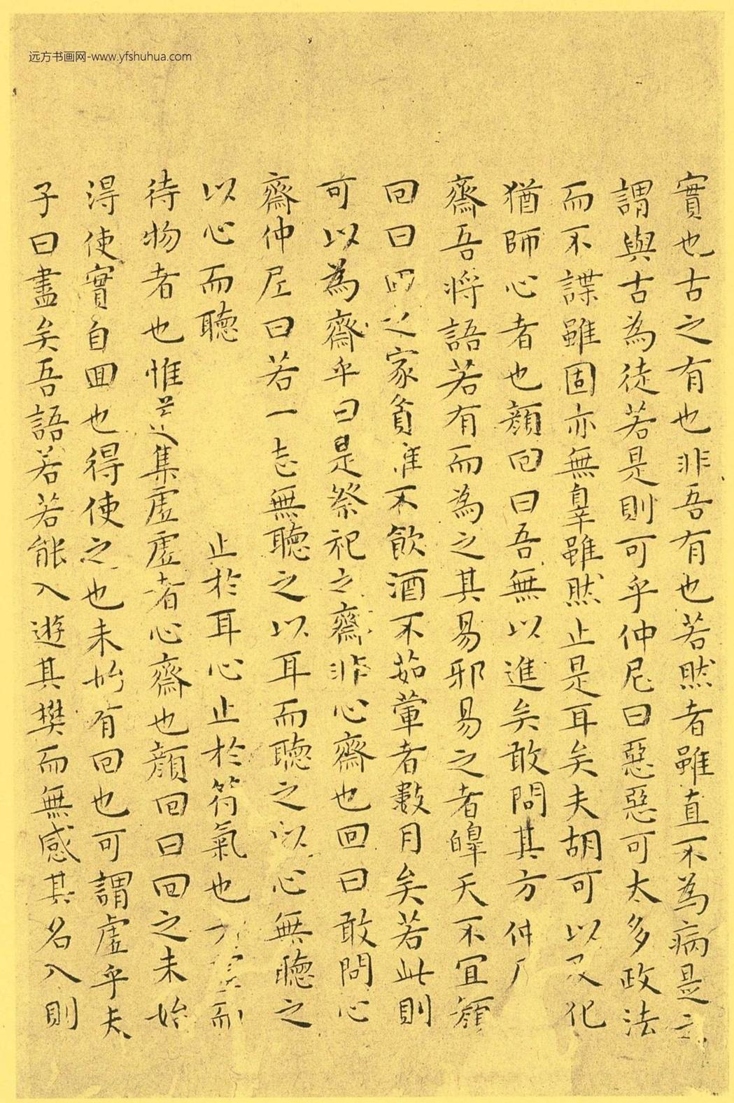 远方书画网-www.yfshuhua.com
實也古之有也非吾有也若然者雖直不為病是之
謂與古為徒若是則可乎仲尼曰惡惡可太多政法
而不諜雖固亦無辠雖然止是耳矣夫胡可以及化
猶師心者也顏回曰吾無以進矣敢問其方仲
齋吾將語若有而為之其易邪易之者皞天不宜顏
回曰回之家貧唯不飲酒不茹葷者數月矣若此則
可以為齋乎曰是祭祀之齋非心齋也回曰敢問心
齋仲尼曰若一志無聽之以耳而聽之以心無聽之
以心而聽 止於耳心止於符氣也 而
待物者也惟 集虛虛者心齋也顏回曰回之未始
得使實自回也得使之也未始有回也可謂虛乎夫
子曰盡矣吾語若若能入遊其樊而無感其名入則